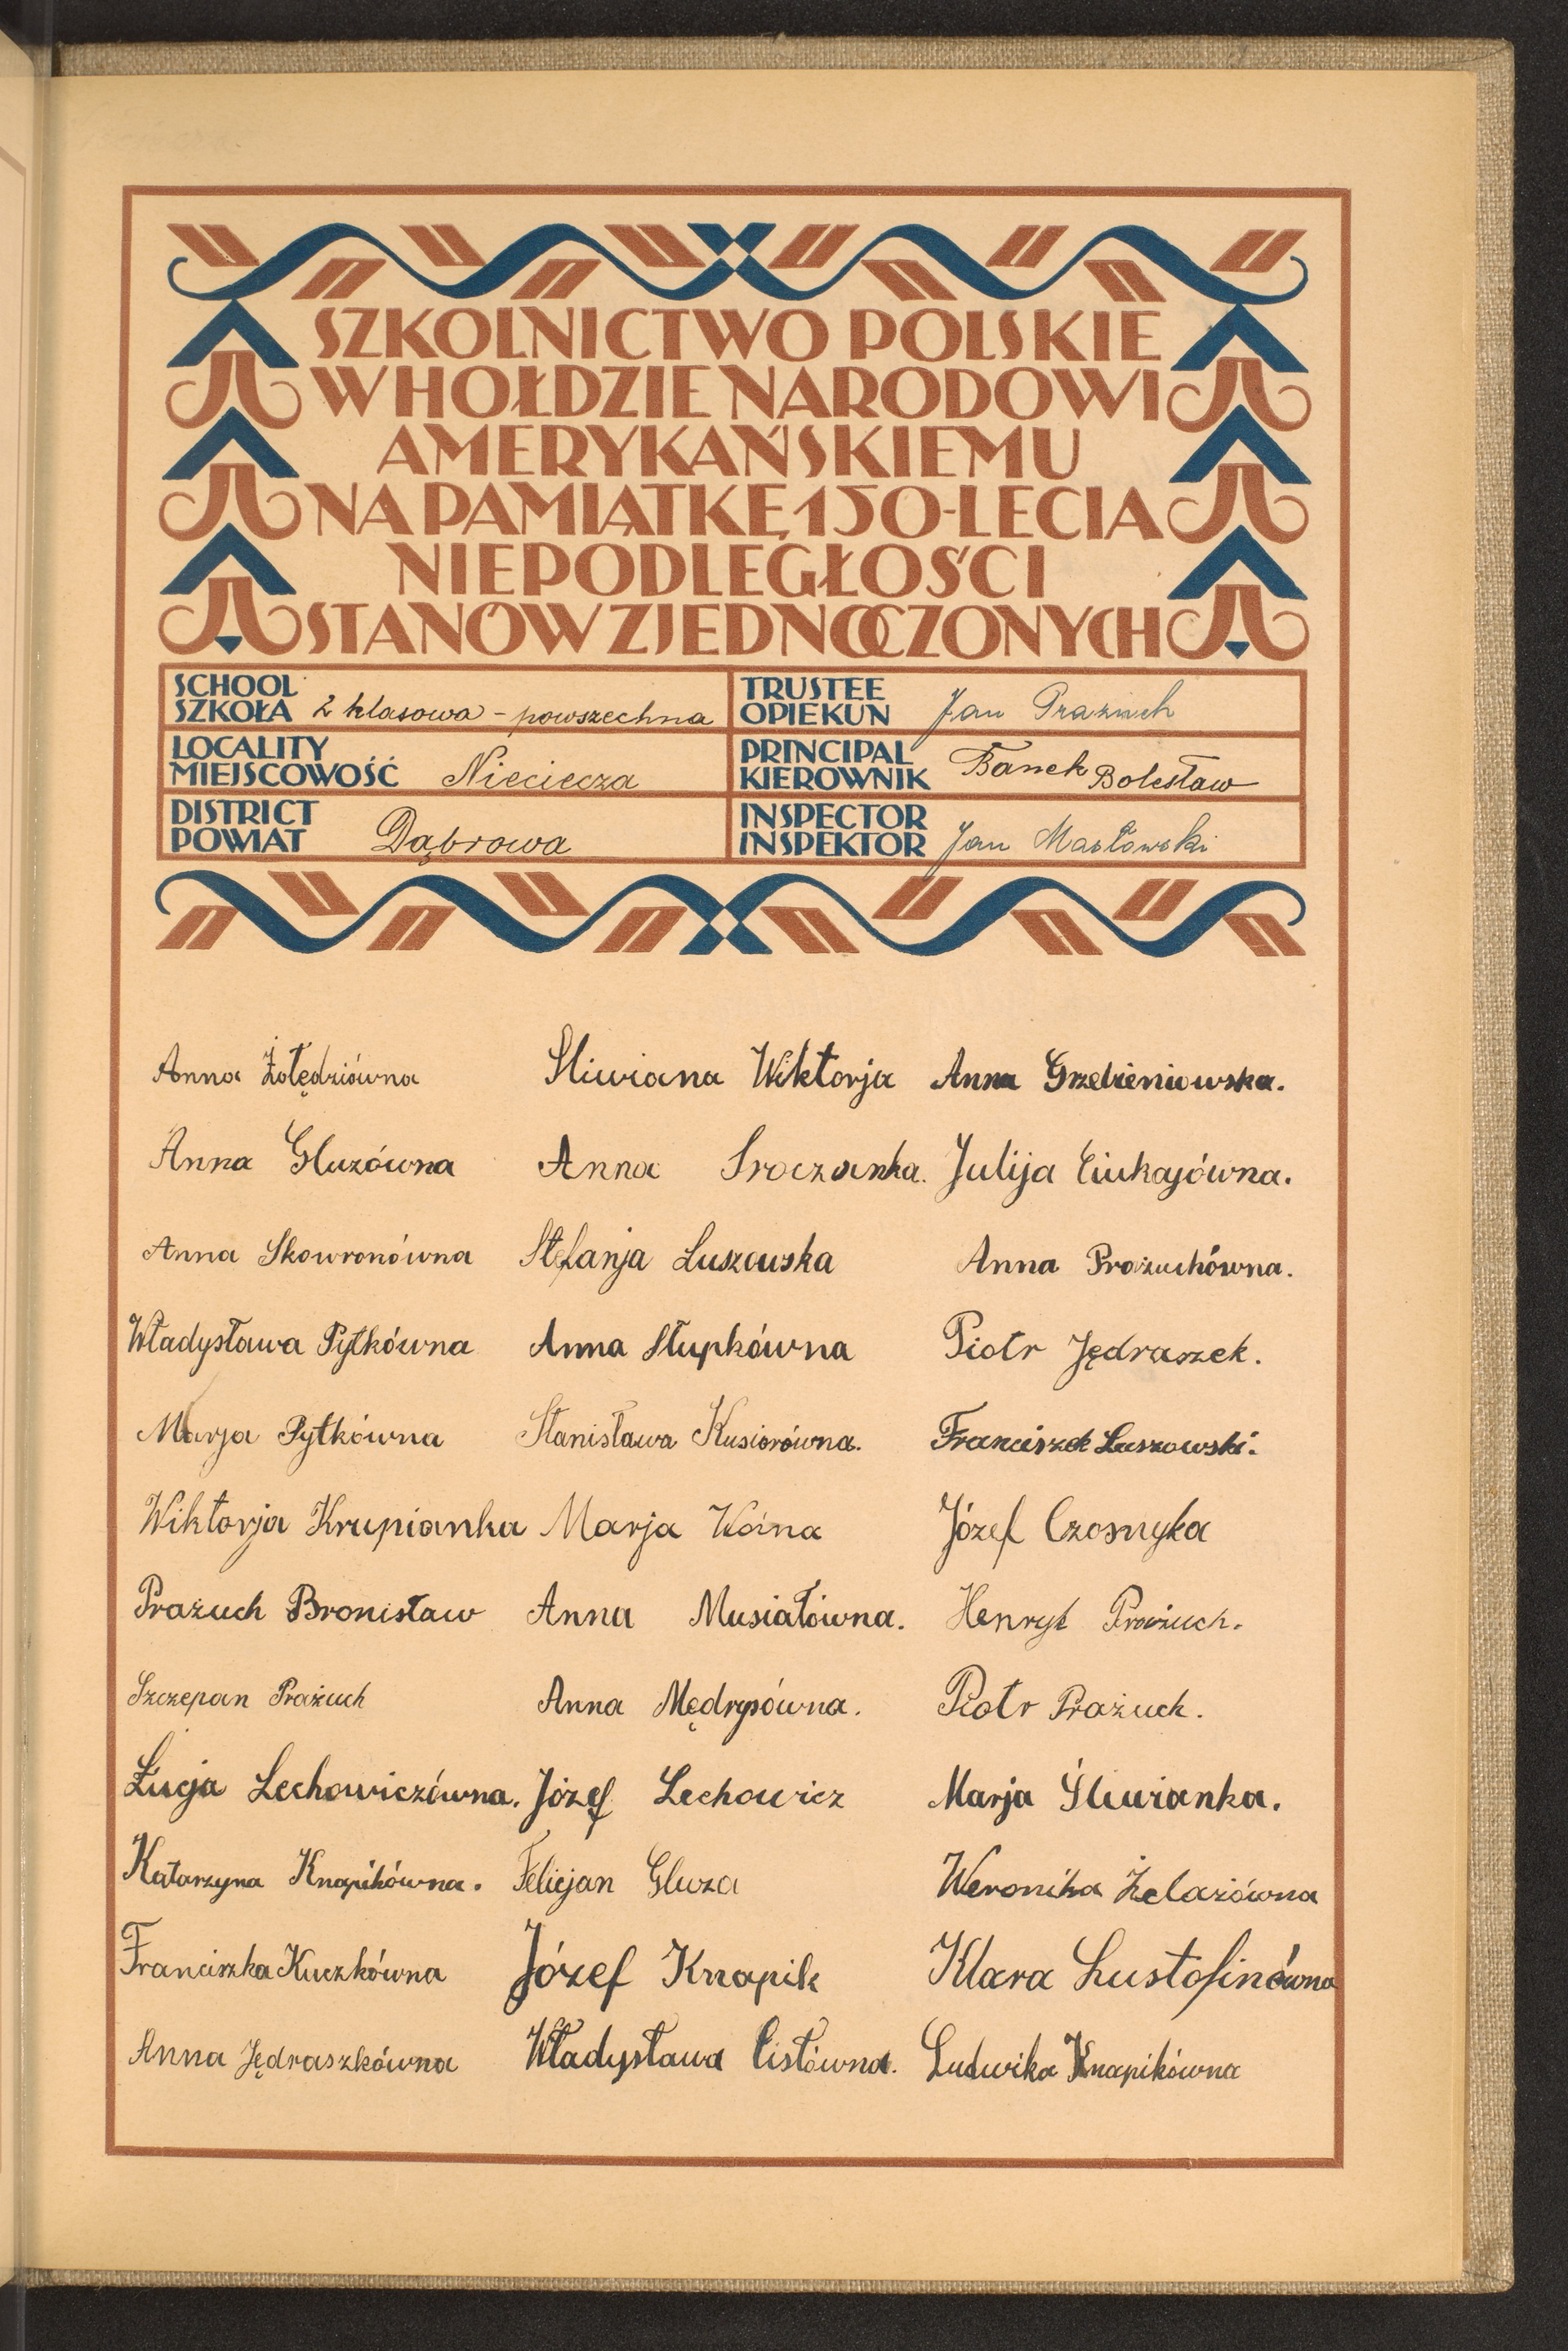 SZKOLNICTWO POLSKIE
W HOŁDZIE NARODOWI
AMERYKAŃSKIEMU
NA PAMIĄTKĘ 150-LECIA
NIEPODLEGŁOŚCI
STANÓW ZJEDNOCZONYCH
SCHOOL
SZKOŁA 2 klasowa - powszechna
TRUSTEE
OPIEKUN Jan Prażuch
LOCALITY
MIEJSCOWOŚĆ Nieciecza
PRINCIPAL
KIEROWNIK Banek Bolesław
DISTRICT
POWIAT Dąbrowa
INSPECTOR
INSPEKTOR Jan Masłowski
Anna Żołędziówna
Anna Gluzówna
Anna Skowronówna
Władysława Pytkówna
Marja Pytkówna
Wiktorja Krupianka
Prażuch Bronisław
Szczepan Prażuch
Łucja Lechowiczówna.
Katarzyna Knapikówna.
Franciszka Kuczkówna
Anna Jędraszkówna
Śliwiana Wiktorja
Anna Sroczanka.
Stefanja Luszowska
Anna Słupkówna
Stanisława Kusiorówna.
Marja Woźna
Anna Musiałówna.
Anna Mędrysówna.
Józef Lechowicz
Felicjan Gluza
Józef Knapik
Władysława Cistówna.
Anna Grzebieniowska.
Julija Ciukajówna.
Anna Prażuchówna.
Piotr Jędraszek.
Franciszek Luszowski.
Józef Czosnyka
Henryk Prażuch.
Piotr Prażuch.
Marja Śliwianka.
Weronika Żelazówna
Klara Lustofinówna
Ludwika Knapikówna